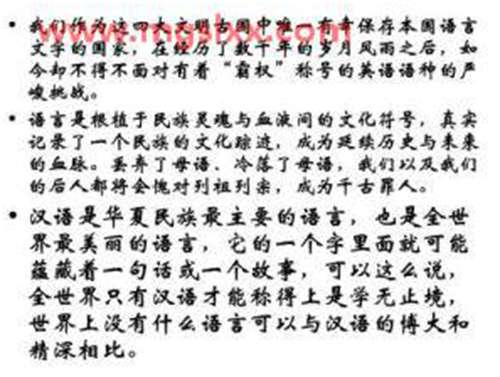 我们作为这四大文明古国中唯一有幸保存本国语言
文字的国家，在经历了数千年的岁月风雨之后，如
今却不得不面对有着“霸权”称号的英语语种的严
峻挑战。
语言是根植于民族灵魂与血液间的文化符号，真实
记录了一个民族的文化踪迹，成为延续历史与未来
的血脉。丢弃了母语、冷落了母语，我们以及我们
的后人都将会愧对列祖列宗，成为千古罪人。
汉语是华夏民族最主要的语言，也是全世
界最美丽的语言，它的一个字里面就可能
蕴藏着一句话或一个故事，可以这么说，
全世界只有汉语才能称得上是学无止境，
世界上没有什么语言可以与汉语的博大和
精深相比。